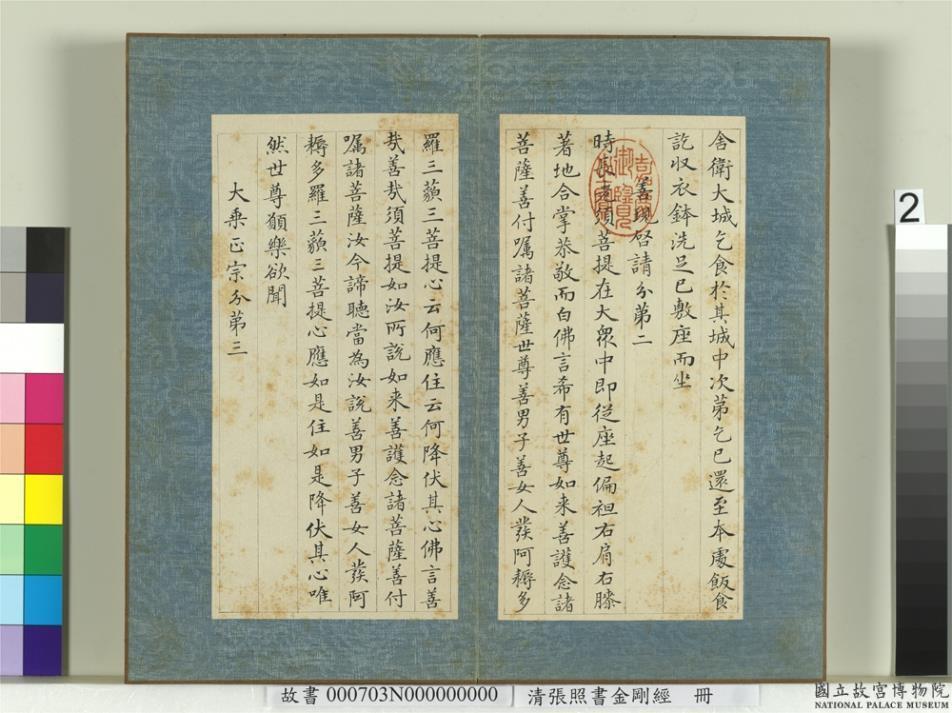 舍衛大城乞食於其城中次第乞已還至本處飯食
訖収衣鉢洗足已敷座而坐
善現啓請分第二
時長老須菩提在大衆中即從座起偏袒右肩右膝
著地合掌恭敬而白佛言希有世尊如来善護念諸
菩薩善付嘱諸菩薩世尊善男子善女人發阿耨多
羅三藐三菩提心云何應住云何降伏其心佛言善
哉善哉須菩提如汝所說如来善護念諸菩薩善付
嘱諸菩薩汝今諦聽當為汝說善男子善女人發阿
耨多羅三藐三菩提心應如是住如是降伏其心唯
然世尊願樂欲聞
大乘正宗分第三
嘉慶御覽之寶
2
故書 000703N000000000
清張照書金剛經 冊
國立故宮博物院
NATIONAL PALACE MUSEUM